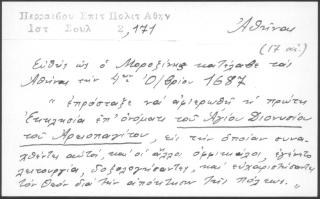 Περραιβου Επιτ Πολιτ Αθην
Ιστ Σουλ 2,171
Ἀθῆναι
(17 αἰ.)
Εὐθύς ὡς ὁ Μοροζίνης κατέλαβε τάς
Ἀθήνας τήν 4ην Ὀ/βρίου 1687
" ἐπρόσταξε νά ἀφιερωθῇ ἡ πρώτη
Ἐκκλησία ἐπ' ὀνόματι τοῦ Ἁγίου Διονυσίου
τοῦ Ἀρεοπαγίτου, εἰς τήν ὁποίαν συνα-
χθέντες αὐτοί, καί οἱ ἄλλοι ὀφφικιάλοι, ἐγένετο
λειτουργία, δοξολογήσαντες, καί εὐχαριστήσαντες
τόν Θεόν διά τήν ἀπόκτησιν τῆς πόλεως. "